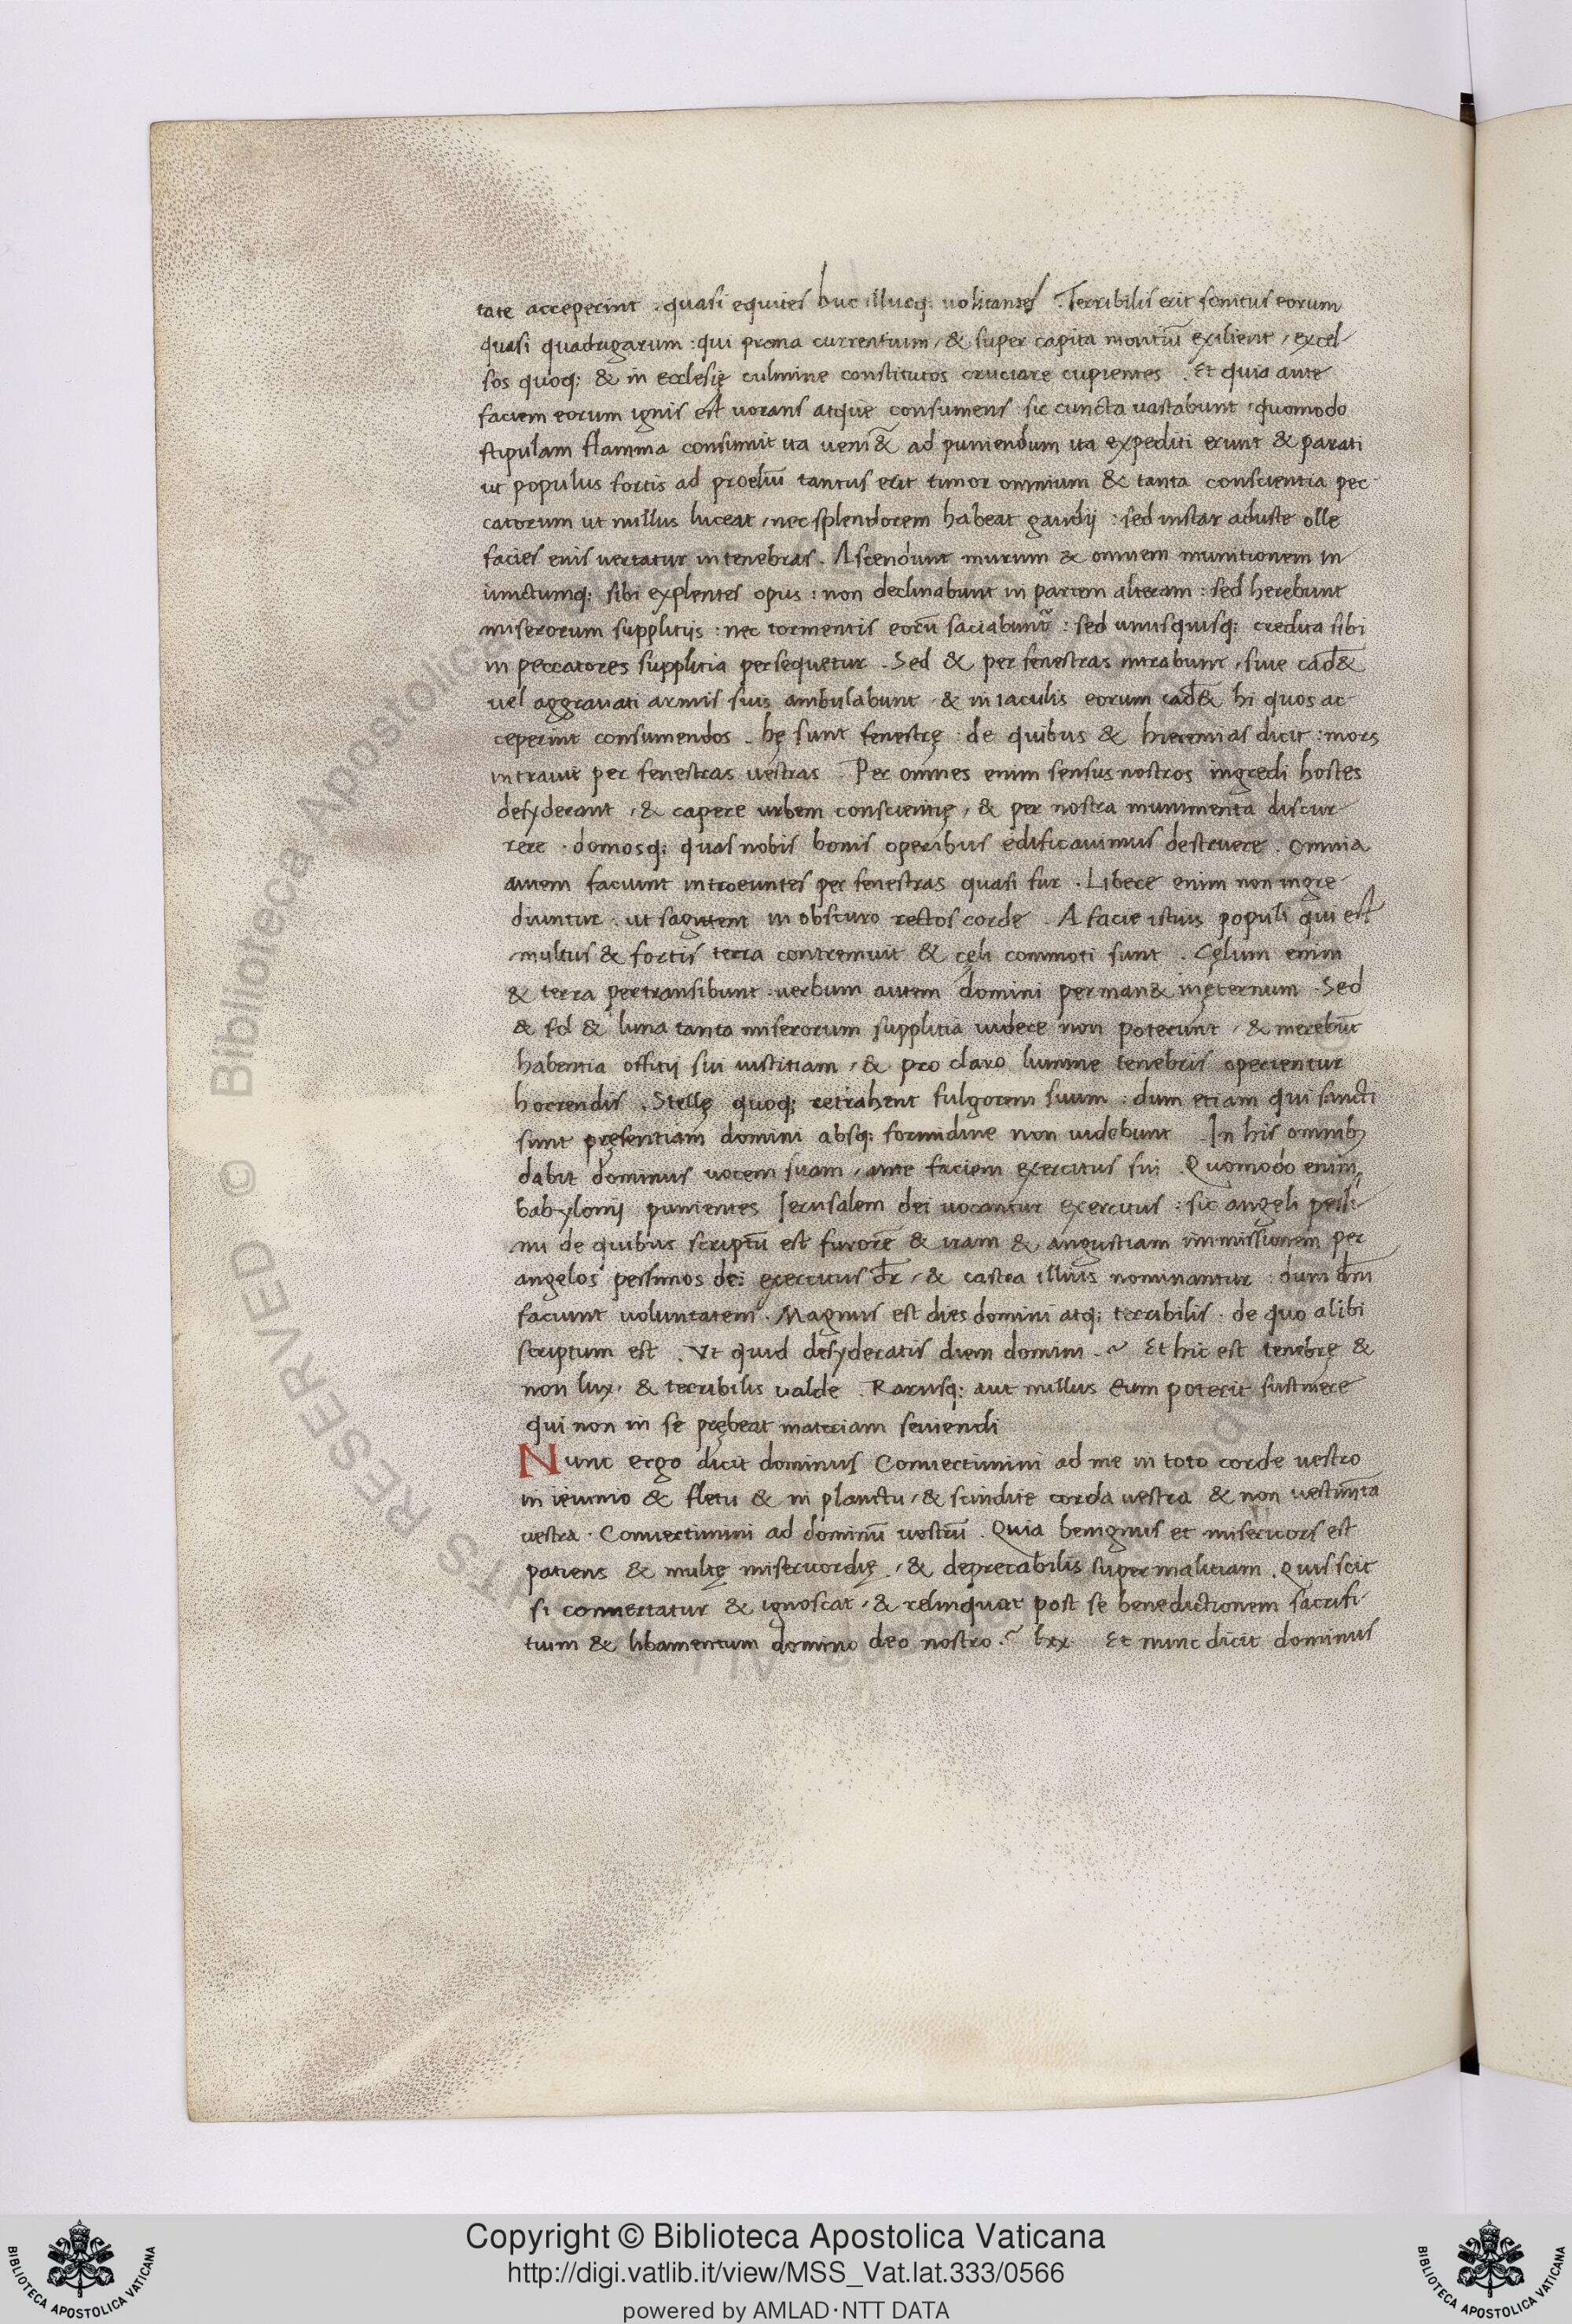 tate acceperint . quasi equites huc illucq; uolitantes . Terribilis erit sonitus eorum
quasi quadrigarum : qui prona currentium , & super capita montiū exilient , excel-
sos quoq; & in ecclesię culmine constitutos cruciare cupientes . Et quia ante
faciem eorum ignis est uorans atque consumens : sic cuncta uastabunt , quomodo
stipulam flamma consumit ita ueni& ad puniendum ita expediti erunt & parati
ut populus fortis ad proeliū tantus erit timor omnium & tanta conscientia pec-
catorum ut nullus luceat , nec splendorem habeat gaudij : sed instar aduste olle
facies eius uertatur in tenebras . Ascendunt murum & omnem munitionem in
iunctumq; sibi explentes opus : non declinabunt in partem alteram : sed herebunt
miserorum supplitijs : nec tormentis eorū saciabunt᷑ : sed unusquisq; credita sibi
in peccatores supplitia persequetur . Sed & per fenestras intrabunt , siue cad&
uel aggrauati armis suis ambulabunt , & in iaculis eorum cad& hi quos ac-
ceperint consumendos . hę sunt fenestrę : de quibus & hieremias dicit : mors
intrauit per fenestras uestras . Per omnes enim sensus nostros ingredi hostes
desyderant , & capere urbem conscientię , & per nostra munimenta discur-
rere . domosq; quas nobis bonis operibus edificauimus destruere . omnia
autem faciunt introeuntes per fenestras quasi fur . Libere enim non ingre-
diuntur . ut sagittent in obscuro rectos corde . A facie istius populi qui est
multus & fortis terra contremuit & cęli commoti sunt . Cęlum enim
& terra pertransibunt . uerbum autem domini perman& inęternum . Sed
& sol & luna tanta miserorum supplitia uidere non poterunt , & merebūt
habentia offitij sui iustitiam , & pro claro lumine tenebris operientur
horrendis . Stellę quoq; retrahent fulgorem suum : dum etiam qui sancti
sunt pręsentiam domini absq; formidine non uidebunt . In his omnib;
dabit dominus uocem suam , ante faciem exercitus sui . Quomodo enim
babylonij punientes Ierusalem dei uocantur exercitus : sic angeli pessi-
mi de quibus scriptū est furorē & iram & angustiam immissionem per
angelos pessimos dei exercitus dr̄ , & castra illius nominantur : dum dn̄i
faciunt uoluntatem . Magnus est dies domini atq; terribilis . de quo alibi
scriptum est . Vt quid desyderatis diem domini . ~ Et hic est tenebrę &
non lux , & terribilis ualde . Rarusq; aut nullus eum poterit sustinere
qui non in se prębeat materiam seuiendi
Nunc ergo dicit dominus Conuertimini ad me in toto corde uestro
in ieiunio & fletu & in planctu , & scindite corda uestra & non uestim̄ta
uestra . Conuertimini ad dominū uestrū . Quia benignus et misericors est
patiens & multę misericordię , & deprecabilis super malitiam . Quis scit
si conuertatur & ignoscat , & relinquat post se benedictionem sacrifi-
tium & libamentum domino deo nostro . ~ lxx Et nunc dicit dominus
RESERVED © Biblioteca Apostolica
BIBLIOTECA APOSTOLICA VATICANA
Copyright © Biblioteca Apostolica Vaticana
http://digi.vatlib.it/view/MSS_Vat.lat.333/0566
powered by AMLAD·NTT DATA
BIBLIOTECA APOSTOLICA VATICANA